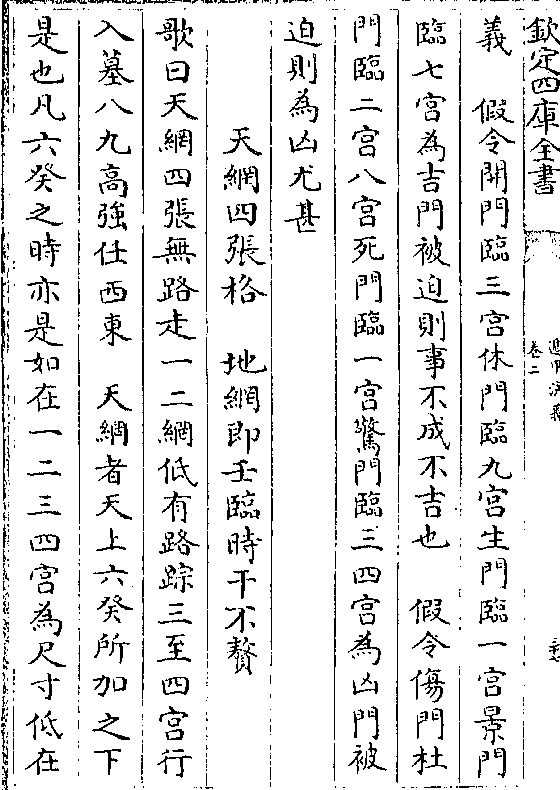 欽定四庫全書
卷二
義　假令開門臨三宮休門臨九宮生門臨一宮景門
臨七宮為吉門被迫則事不成不吉也　假令傷門杜
門臨二宮八宮死門臨一宮驚門臨三四宮為凶門被
迫則為凶尤甚
天網四張格　地網即壬臨時干不贅
歌曰天網四張無路走一二網低有路踪三至四宮行
入墓八九高強任西東　天網者天上六癸所加之下
是也凡六癸之時亦是如在一二三四宮為尺寸低在